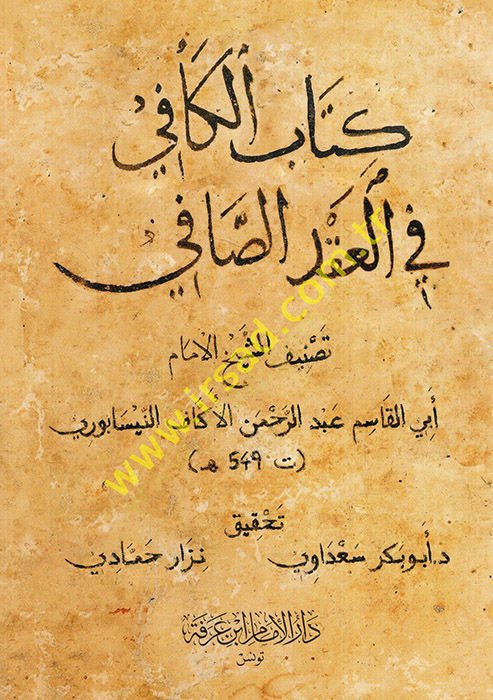 كتاب الكافي
في العقد الصافي
تصنيف الشيخ الإمام
أبي القاسم عبد الرحمن الأكاف النيسابوري
(ت 549 هـ)
تحقيق
د. أبو بكر سعداوي نزار حمادي
دار الإمام ابن عرفة
تونس
www.irsad.com.tr